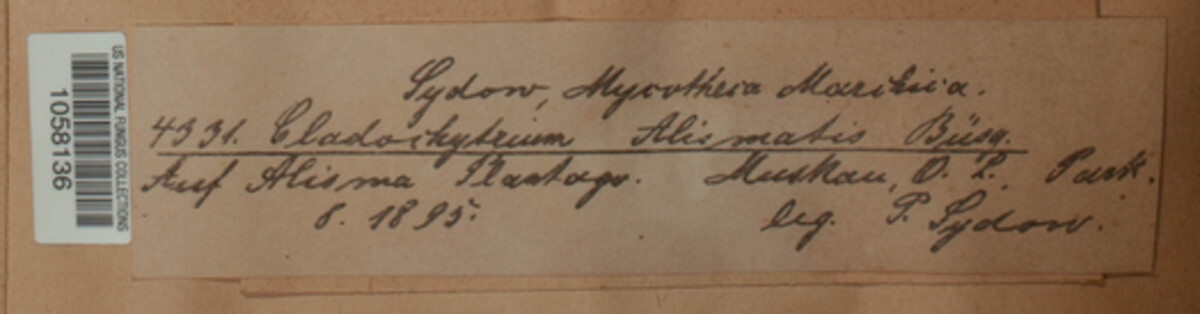 US NATIONAL FUNGUS COLLECTIONS
1058136
Sydow, Mycotheca Marchica.
4331. Cladochytrium Alismatis Büsg.
Auf Alisma Plantago. Muskau, O. L., Park.
8. 1895. leg. P. Sydow.